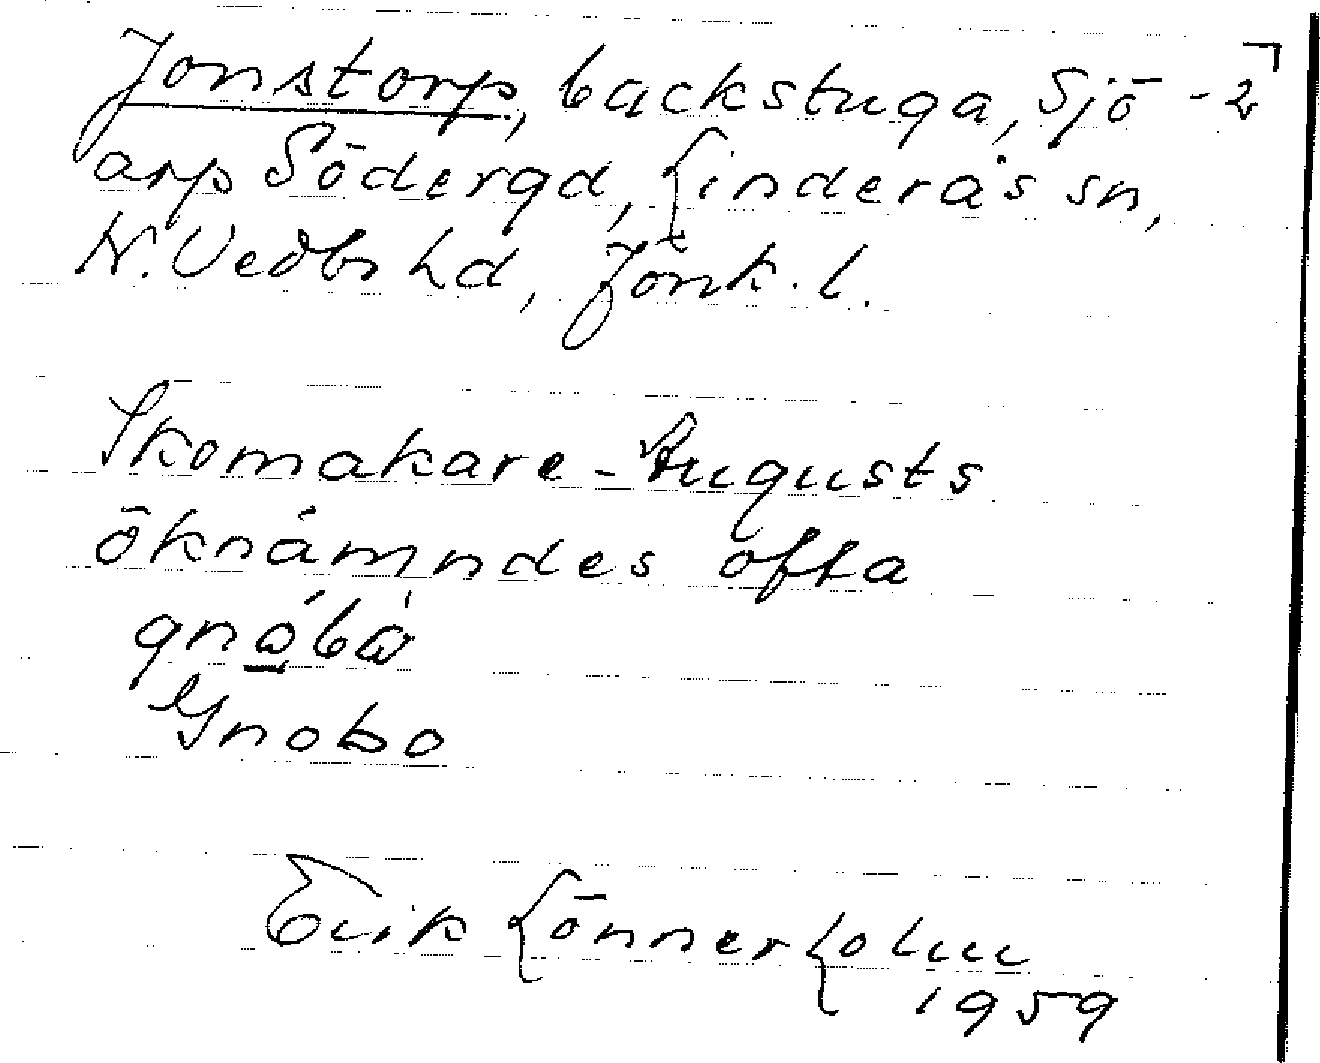 Jonstorp, backstuga, Sjö-
arp Södergd, Linderås sn,
N. Vedbo hd, Jönk. l.
Skomakare-Augusts
öknämndes ofta
gnåbå
Gnobo
Erik Lönnerholm
1959